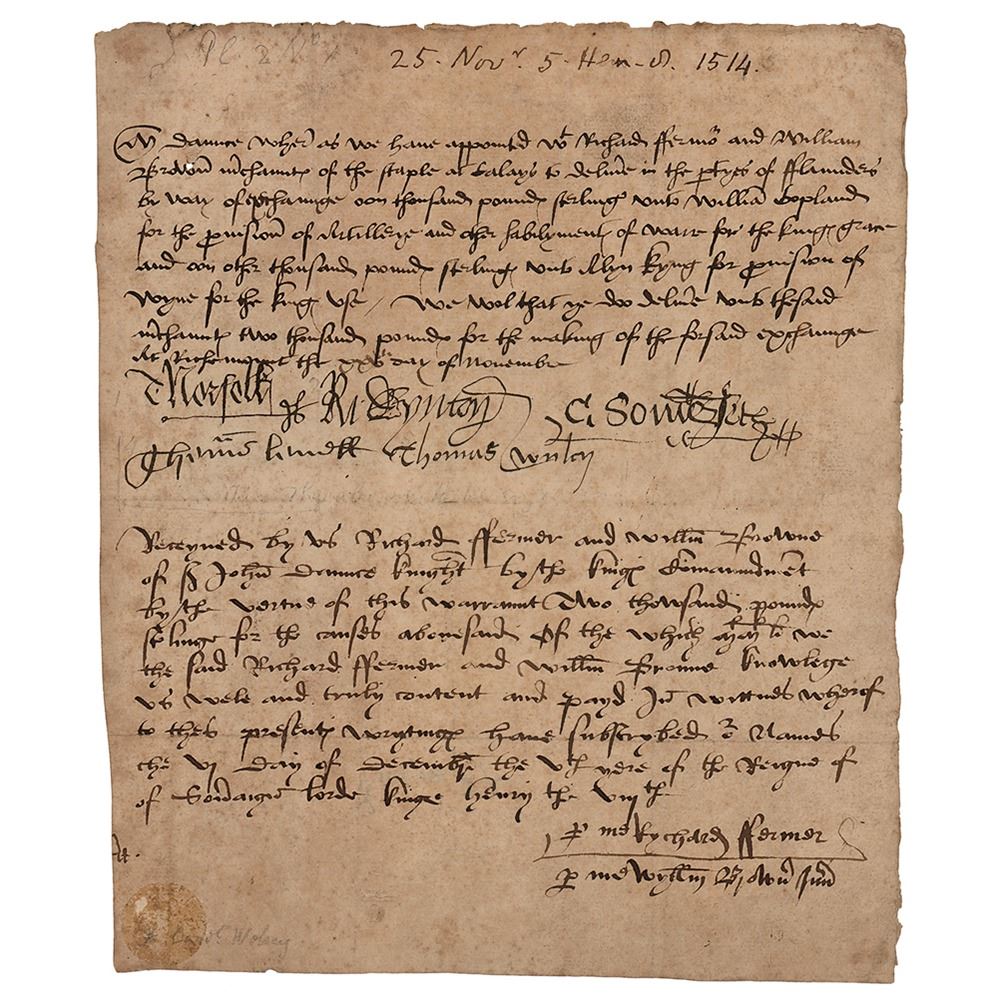 25. Novr. 5. Hen. 8. 1514.
Mr daunce wher as we have appointed wt Richard ffermor and William
Brown mchaunts of the staple at Calays to delive in the ptyes of fflaunders
by way of exchaunge oon thousand pounds sterling unto William Copland
for the pvision of Artillerye and other habilyments of warre for the kings grace
and oon other thousand pounds sterling unto Alyn kyng for pvision of
Wyne for the kings use / We wol that ye do delive unto thesaid
mchaunts two thousand pounds for the making of the forsaid exchaunge
At Richemount the xxv day of Novembre
T Norfolk Ri Wynton C Somerset
Thomas lovell Thomas
Receyved by us Richard ffermer and willm Browne
of Sr John daunce knyght by the kings Comaundment
by the vertue of this warraunt Two thowsand pounds
stlinge for the causes abovesaid Of the which we
the said Richard ffermer and willm Browne knowlege
us wele and truly content and payd In wittnes wherof
to thes presents wrytings have subscrybed or Names
the vj day of decembr the vth yere of the Reigne of
of Sovaigne lorde kinge henry the viijth
P me Rychard ffermer
P me Wyllm Brown
Card. Wolsey